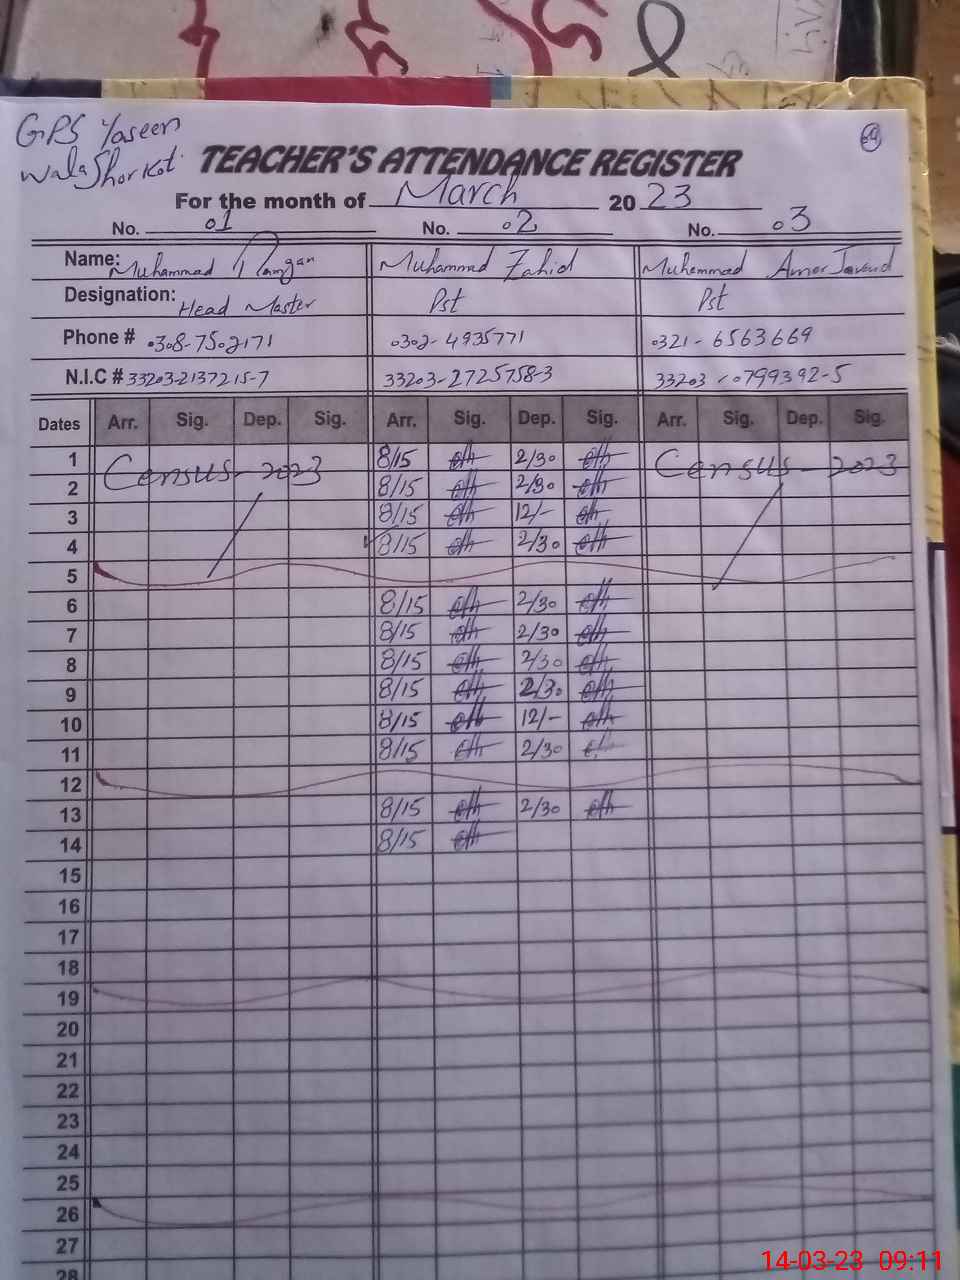 GPS Yaseen
Wala Shorkot
69
TEACHER'S ATTENDANCE REGISTER
For the month of March 2023
No. 01 No. 02 No. 03
Name: Muhammad Muhammad Zahid Muhammad Amer Javaid
Designation: Head Master Pst Pst
Phone # 0308-7502171 0302-4935771 0321-6563669
N.I.C # 33203-2137215-7 33203-2725758-3 33203-0799392-5
Dates Arr. Sig. Dep. Sig. Arr. Sig. Dep. Sig. Arr. Sig. Dep. Sig.
1 Census-2023 8/15 2/30 Census-2023
2 8/15 2/30
3 8/15 12/-
4 8/15 2/30
5
6 8/15 2/30
7 8/15 2/30
8 8/15 2/30
9 8/15 2/30
10 8/15 12/-
11 8/15 2/30
12
13 8/15 2/30
14 8/15
15
16
17
18
19
20
21
22
23
24
25
26
27
28
14-03-23 09:11